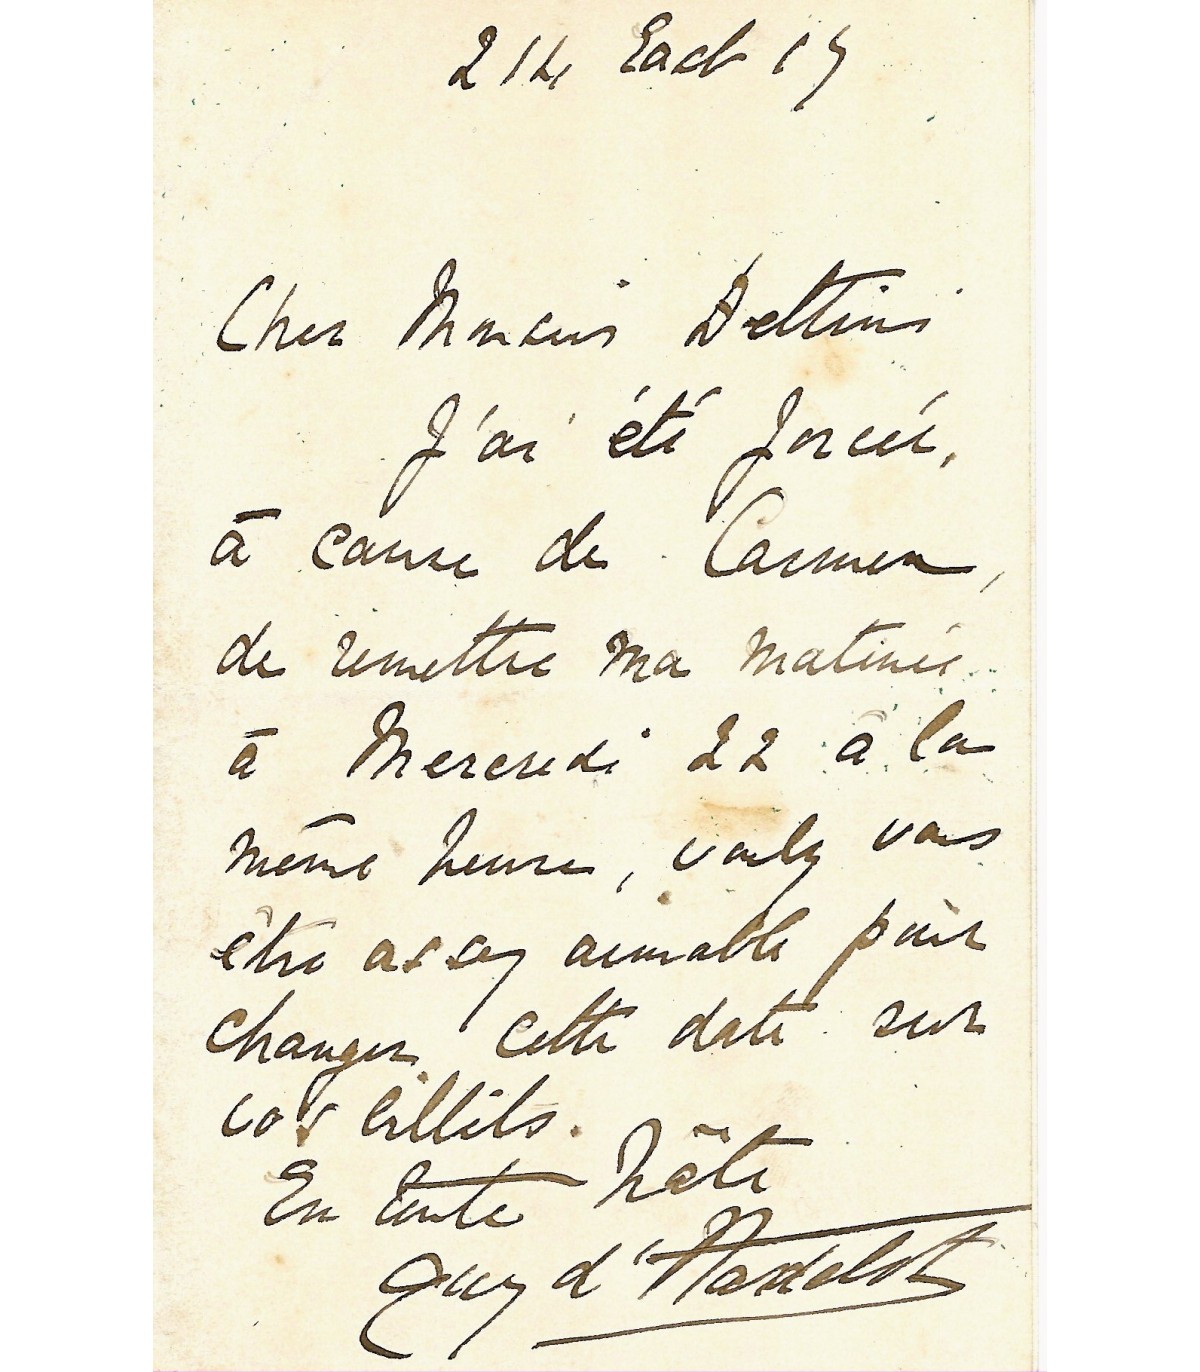 214 East 17
Cher Monsieur
J'ai été forcée,
à cause de Carmen,
de remettre ma matinée
à Mercredi 22 à la
même heure, voulez vous
être assez aimable pour
changer cette date sur
vos billets.
En toute hâte
Guy d'Hardelot